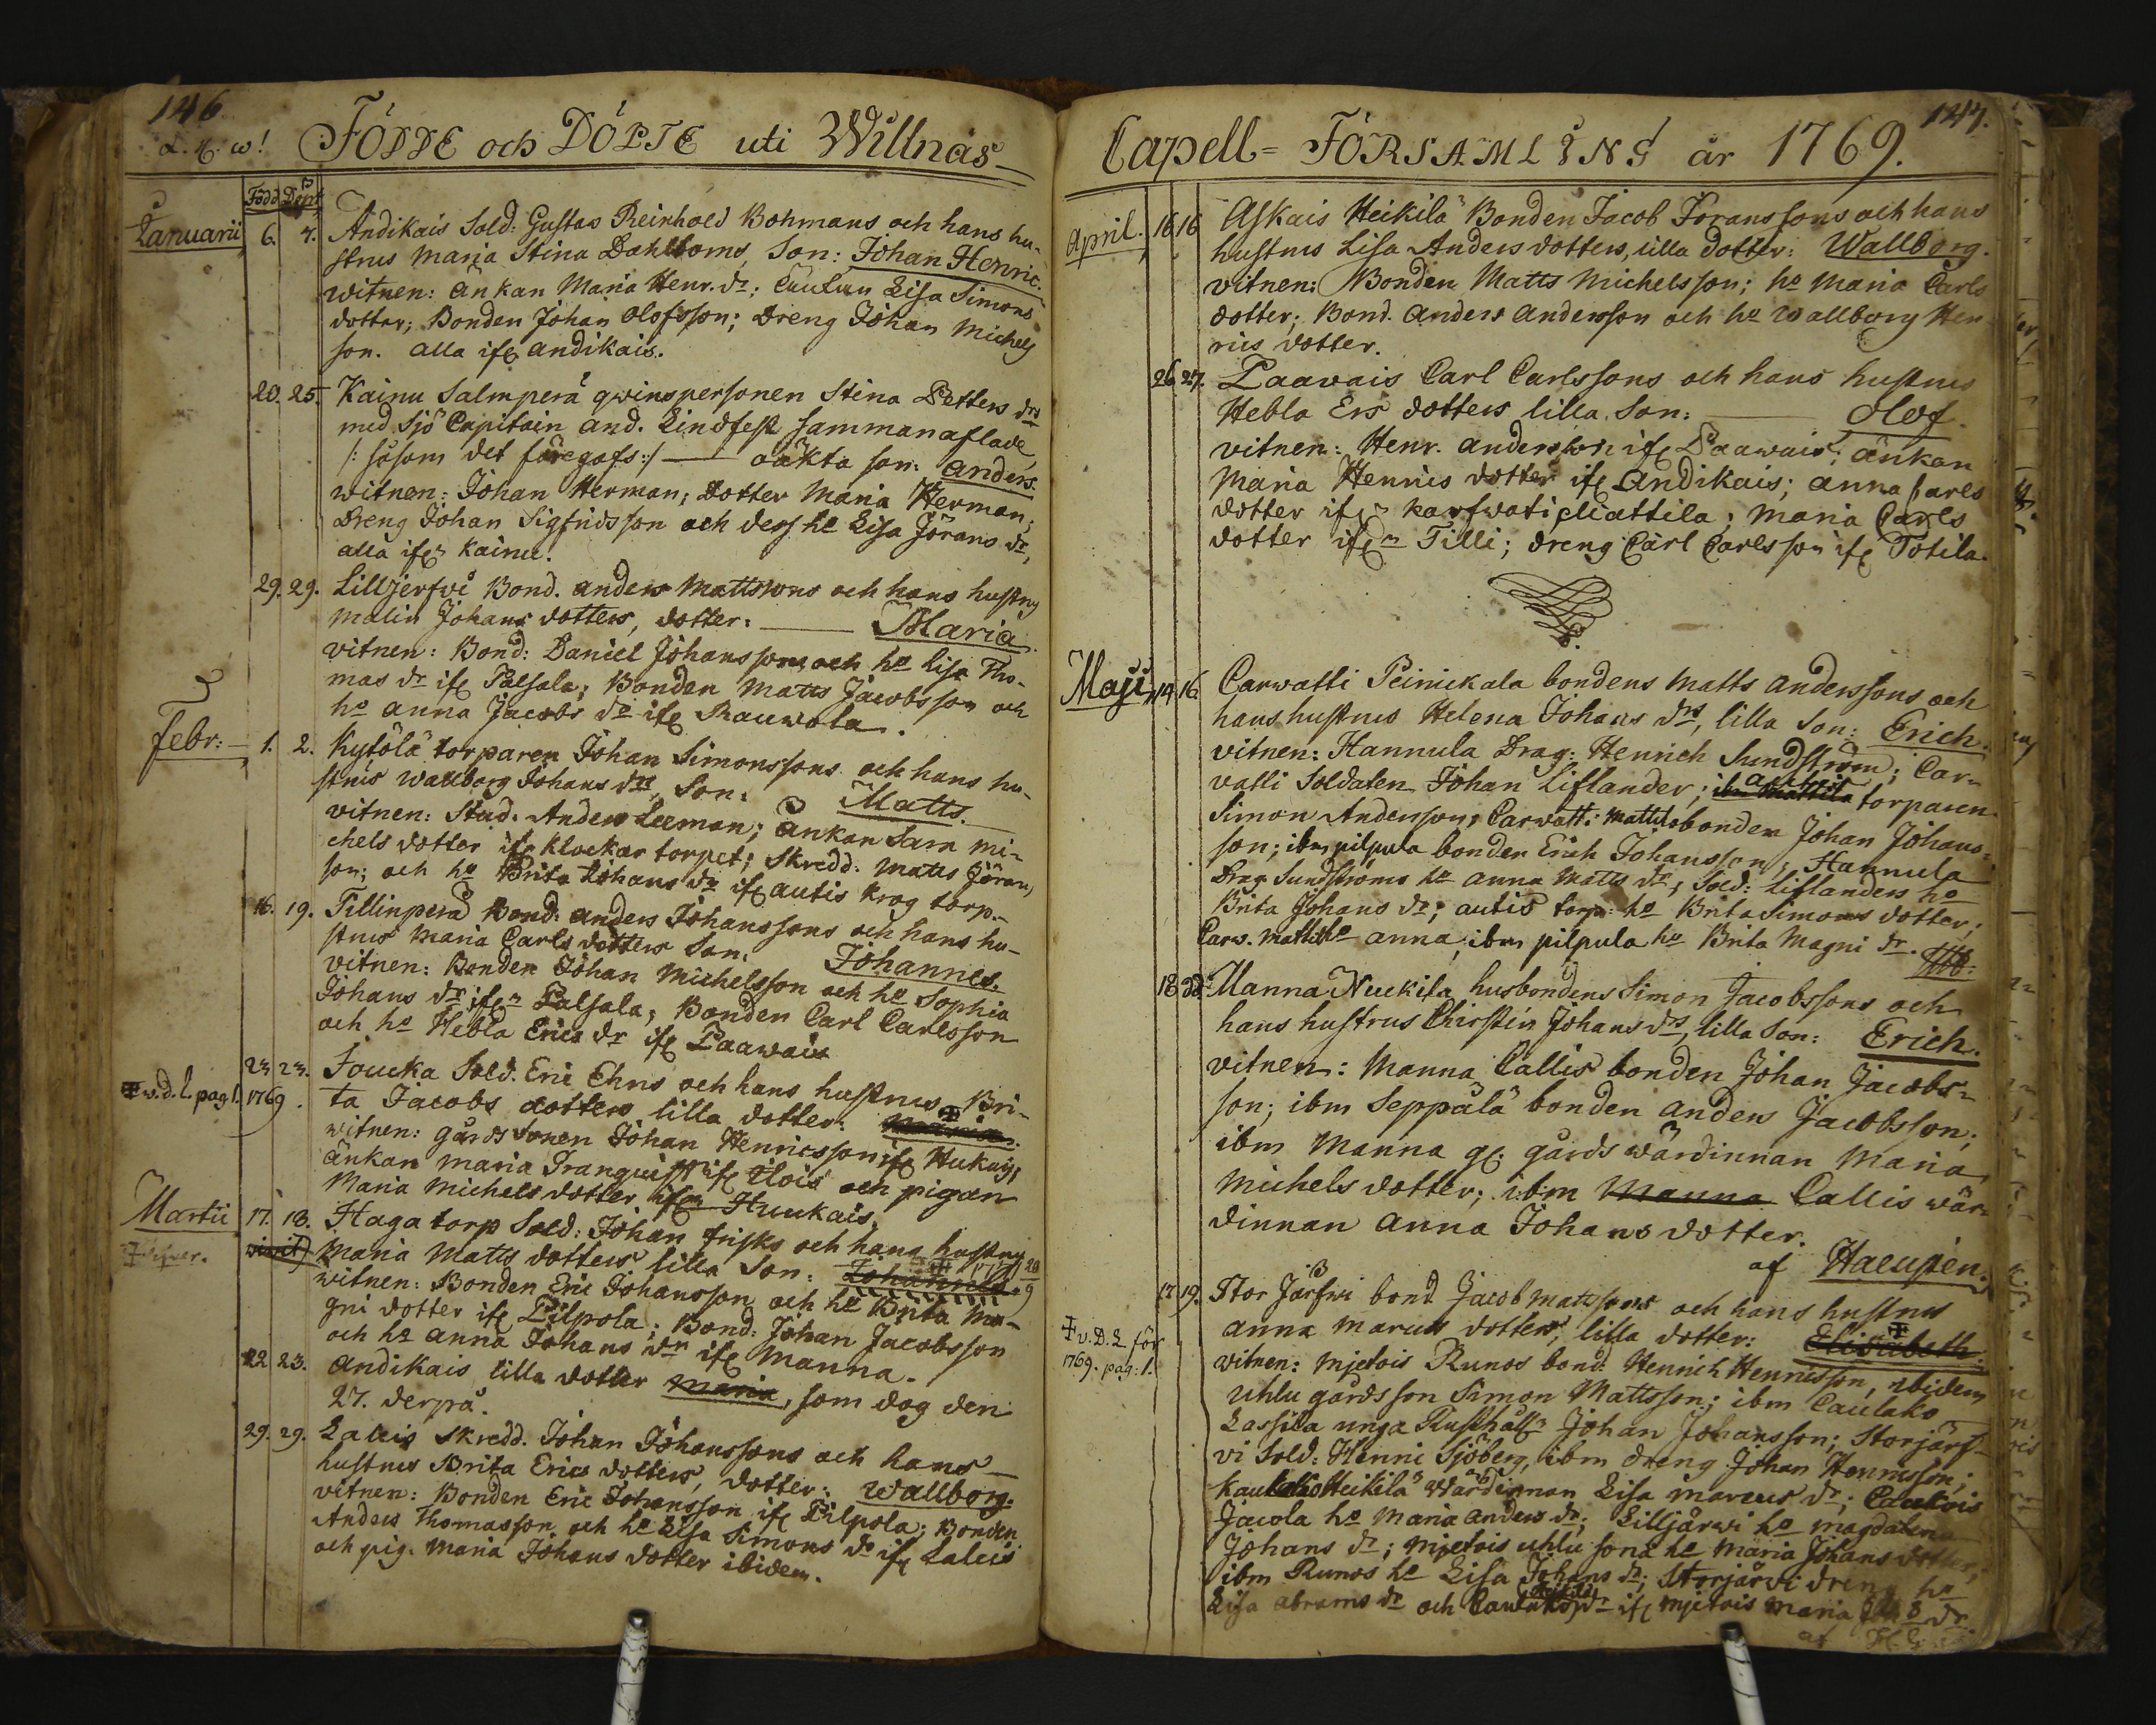 146.
FÖDDE och DÖPTE uti Willnäs-
Född Döpt
Januarii 6. 7. Andikais Sold: Gustav Reinhold Bohmans och hans hu-
strus Maria Stina Dahlboms, Son: Johan Henric.
witnen: änkan Maria Henr. dr; Lisa Simons
dotter; Bonden Johan Olofsson; Dreng Johan Michels
son. alla ifr andikais.
20. 25. Kainu Salmperä qwinspersonen Stina Petters drs
med Sjö Capitain And. Lindfest sammanaflade
/: såsom det föregafs:/ — oäkta son: Anders.
witnen: Johan Herman; Dotter Maria Herman;
Dreng Johan Sigfridsson och dess ho Lisa Jörans dr,
alla ifrn Kainu.
29. 29. Lilljerfvi Bond. anders Mattssons och hans hustrus
Malin Johans dotters, dotter: — Maria
vitnen: Bond: Daniel Johanssons och ho Lisa Tho-
mas dr ifr Palsala; Bonden Matts Jacobsson och
ho anna Jacobs dr ifr Rauwola.
Febr: 1. 2. Kytölä torparen Johan Simonssons och hans hu-
strus Wallborg Johans drs, Son: Matts.
vitnen: Stud. Anders Leeman; änkan Sara Mi-
chels dotter ifr Klockar torpet; Skredd. Matts Jörans
son; och ho Brita Johans dr ifr autis krog torp.
16. 19. Tillinperä Bond: anders Johanssons och hans hu-
strus Maria Carls dotters Son, Johannes.
vitnen: Bonden Johan Michelsson och ho Sophia
Johans dr ifrn Palsala; Bonden Carl Carlsson
och ho Hebla Erics dr ifr Paawais
23 23. Joucka Sold. Eric Ehns och hans hustrus Bri-
v.d.l. pag 1. 1769. ta Jacobs dotters lilla dotter: Maria.
witnen: gårds sonen Johan Henricsson ifr Hukais;
änkan Maria Tranquist ifr och pigan
Maria Michels dotter ifrn Huukais.
Martii 17. 18. Haga torp Sold: Johan Frisks och hans hustrus
Maria Matts dotters lilla Son: Johannes.
witnen: Bonden Eric Johansson och ho Brita Ma-
gni dotter ifr Pilpola; Bond: Johan Jacobsson
och ho anna Johans dr ifr Manna.
22 23. Andikais lilla dotter Maria, som dog den
27. derpå.
29. 29. Laleis Skredd. Johan Johanssons och hans
hustrus Brita Erics dotters, dotter: Wallborg.
vitnen: Bonden Eric Johansson ifr Pilpola; Bonden
Anders Thomasson och ho Lisa Simons dr ifr Laleis
och pig. Maria Johans dotter ibidem.
147.
Capell= FÖRSAMLING år 1769.
April. 16 16 Askais Heikilä Bonden Jacob Joranssons och hans
hustrus Lisa Anders dotters, lilla dotter: Wallborg.
vitnen: Bonden Matts Michelsson; ho Maria Carls
dotter; Bond. Anders Andersson och ho Wallborg Hen-
rics dotter.
26 27. Paawais Carl Carlssons och hans hustrus
Hebla Ers dotters lilla Son: — Olof.
vitnen: Henr. andersson ifr Paawais; änkan
Maria Henrics dotter ifr Andikais; anna Carls
dotter ifrn karfwati Mattila; Maria Carls
dotter ifrn Tilli; dreng Carl Carlsson ifr Totila.
Maji 14 16. Carwatti Peinickala bondens Matts Anderssons och
hans hustrus Helena Johans drs, lilla Son: Erich.
vitnen: Hannula Drag: Henrich Sundström; Car-
vatti Soldaten Johan Liflander; ibm Mattila autis torparen
Simon Andersson; Carvatti Mattila bonden Johan Johans-
son; ibm pilpula bonden Erich Johansson; Hannula
Drag. Sundströms ho anna Matts dr; Sold: Liflanders ho
Brita Johans dr; autis torp: ho Brita Simons dotter;
Carv. Mattila ho anna; ibm pilpula ho Brita Magni dr.
18 22. Manna Nuckila husbondens Simon Jacobssons och
hans hustrus Christin Johans drs, lilla Son: Erich.
vitnen: Manna Callis bonden Johan Jacobs-
son; ibm Seppälä bonden Anders Jacobsson;
ibm Manna gl. gårds wärdinnan Maria
Michels dotter; ibm Manna Callis wär-
dinnan Anna Johans dotter.
af Haeupen.
17 19. Stor Järfvi bond Jacob Mattssons och hans hustrus
v. D. L. för 1769. pag. 1. anna Marcus dotters, lilla dotter: Elisabeth.
witnen: Mjetois Runos bond: Henrich Henricsson, ibidem
Uhlu gårds son Simon Mattsson; ibm Caulako
Lassila unga Rusthåll: Johan Johansson; Storjärf-
vi Sold: Henric Sjöberg, ibm dreng Johan Henricsson;
Heikilä Wärdinnan Lisa Marcus dr;
Jacola ho Maria anders dr; Lilljärvi ho Magdalena
Johans dr; Mjetois uhlu sona ho Maria Johans dotter;
ibm Runos ho Lisa Johans dr; Storjärvi dreng ho
Lisa abrams dr och ifr Mjetois Maria dr.
af